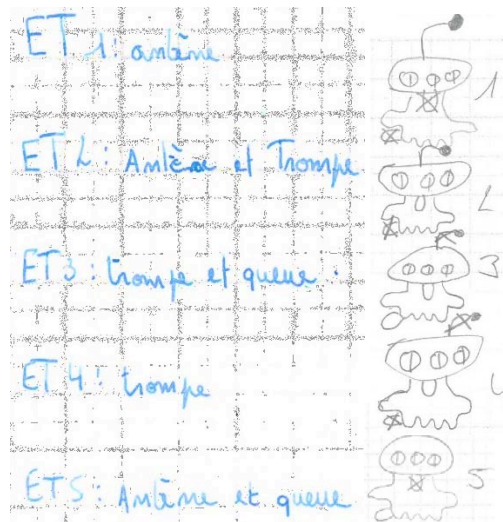 ET 1: antène
1
ET 2: Antène et Trompe
2
ET3: trompe et queue.
3
ET4: trompe
ET5: Antène et queue
5